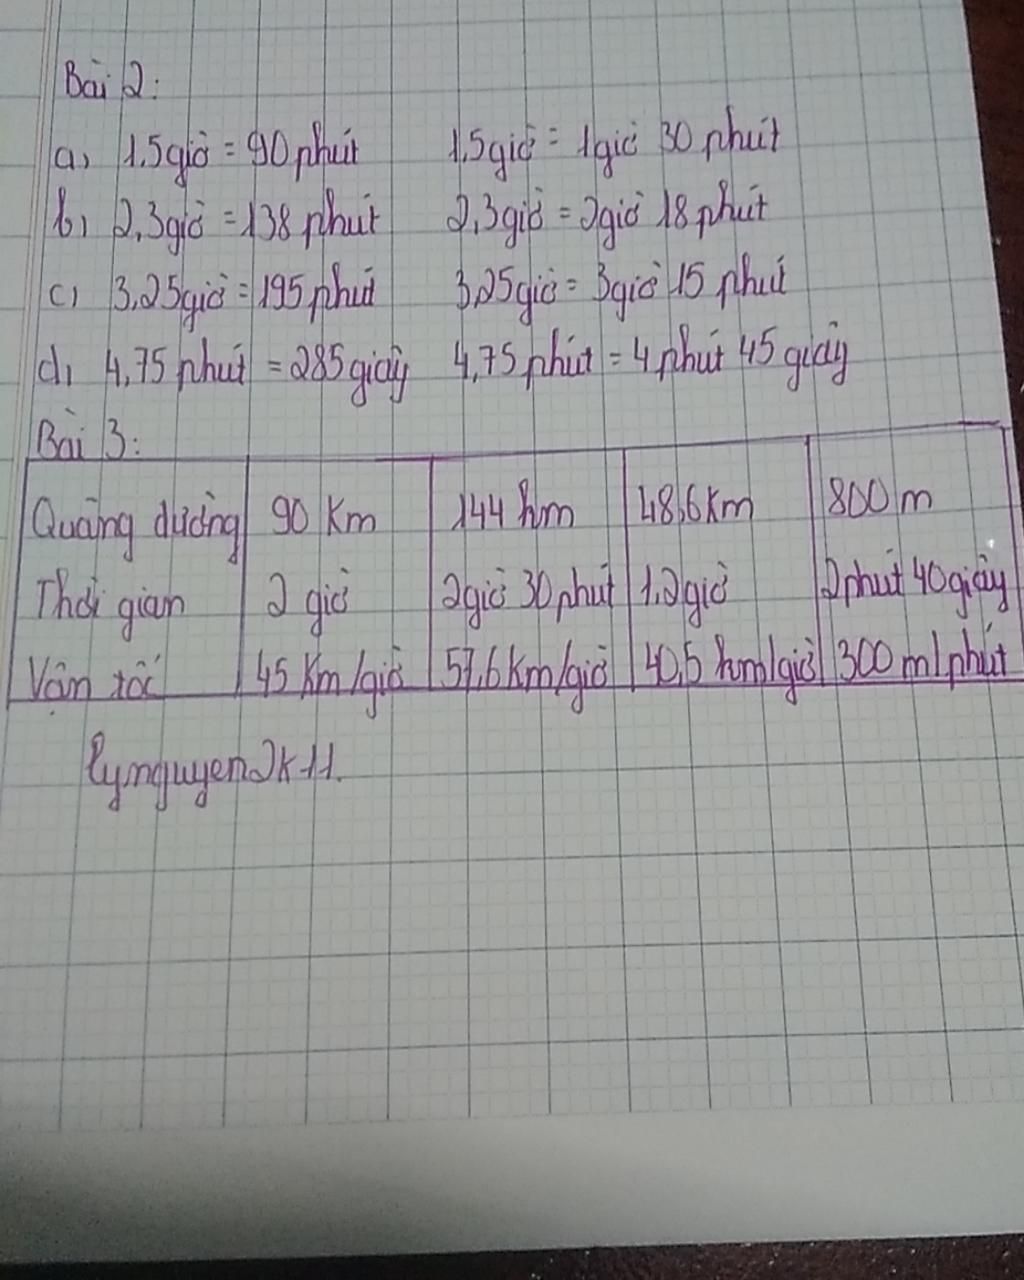 Bài 2:
a, 1,5giờ = 90 phút 1,5giờ = 1giờ 30 phút
b, 2,3giờ = 138 phút 2,3giờ = 2giờ 18 phút
c, 3,25giờ = 195 phút 3,25giờ = 3giờ 15 phút
d, 4,75 phút = 285 giây 4,75 phút = 4 phút 45 giây
Bài 3:
Quãng đường 90 Km 144 km 48,6 Km 800 m
Thời gian 2 giờ 2giờ 30 phút 1,2giờ 2phút 40giây
Vận tốc 45 Km/giờ 57,6 Km/giờ 40,5 km/giờ 300 m/phút
lynguyen2k11.